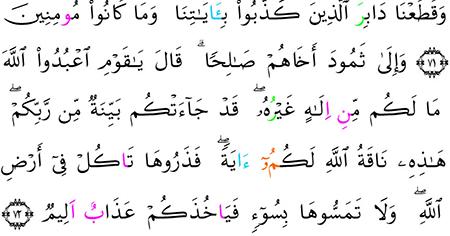 وَقَطَعْنَا دَابِرَ ٱلَّذِينَ كَذَّبُوا۟ بِـَٔايَـٰتِنَا وَمَا كَانُوا۟ مُومِنِينَ
٧١ وَإِلَىٰ ثَمُودَ أَخَاهُمْ صَـٰلِحًا ۗ قَالَ يَـٰقَوْمِ ٱعْبُدُوا۟ ٱللَّهَ
مَا لَكُم مِّنِ اِلَـٰهٍ غَيْرُهُۥ ۖ قَدْ جَآءَتْكُم بَيِّنَةٌ مِّن رَّبِّكُمْ ۖ
هَـٰذِهِۦ نَاقَةُ ٱللَّهِ لَكُمُۥٓ ءَايَةً ۖ فَذَرُوهَا تَاكُلْ فِىٓ أَرْضِ
ٱللَّهِ ۖ وَلَا تَمَسُّوهَا بِسُوٓءٍ فَيَاخُذَكُمْ عَذَابٌ اَلِيمٌ ٧٢